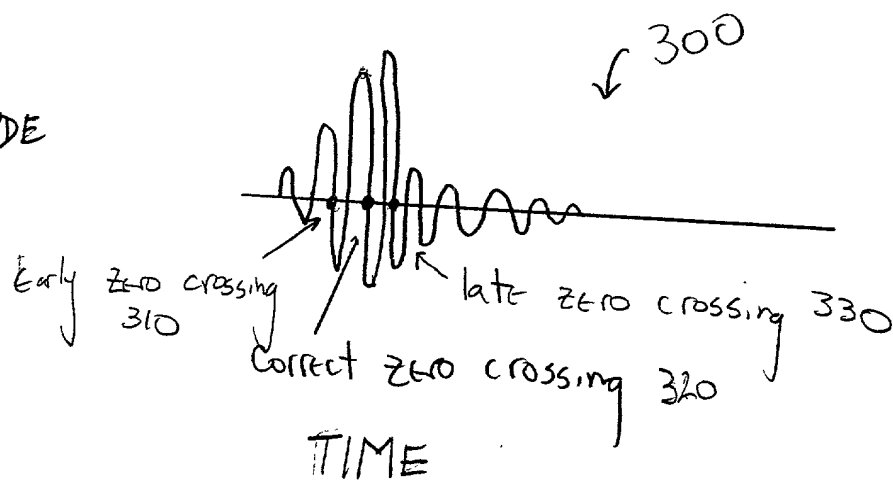 300
DE
Early zero crossing
310
late zero crossing 330
Correct zero crossing 320
TIME